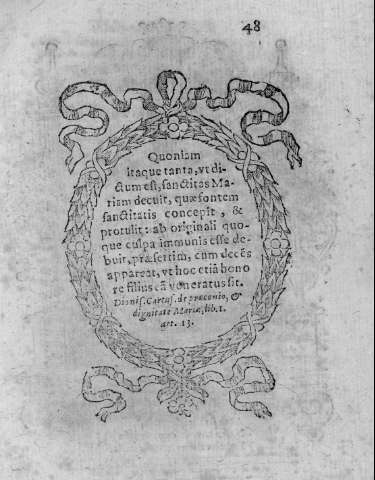 48
Quoniam
itaque tanta, vt di-
ctum est, sanctitas Ma-
riam decuit, quæ fontem
sanctitatis concepit, &
protulit: ab originali quo-
que cuspa immunis esse de-
buit, præsertim, cum decēs
appareat, vt hoc etiā hono
re filius eā veneratus sit.
Dionis. Cartus. de præconio, &
dignitate Mariæ, lib. 1.
art. 13.